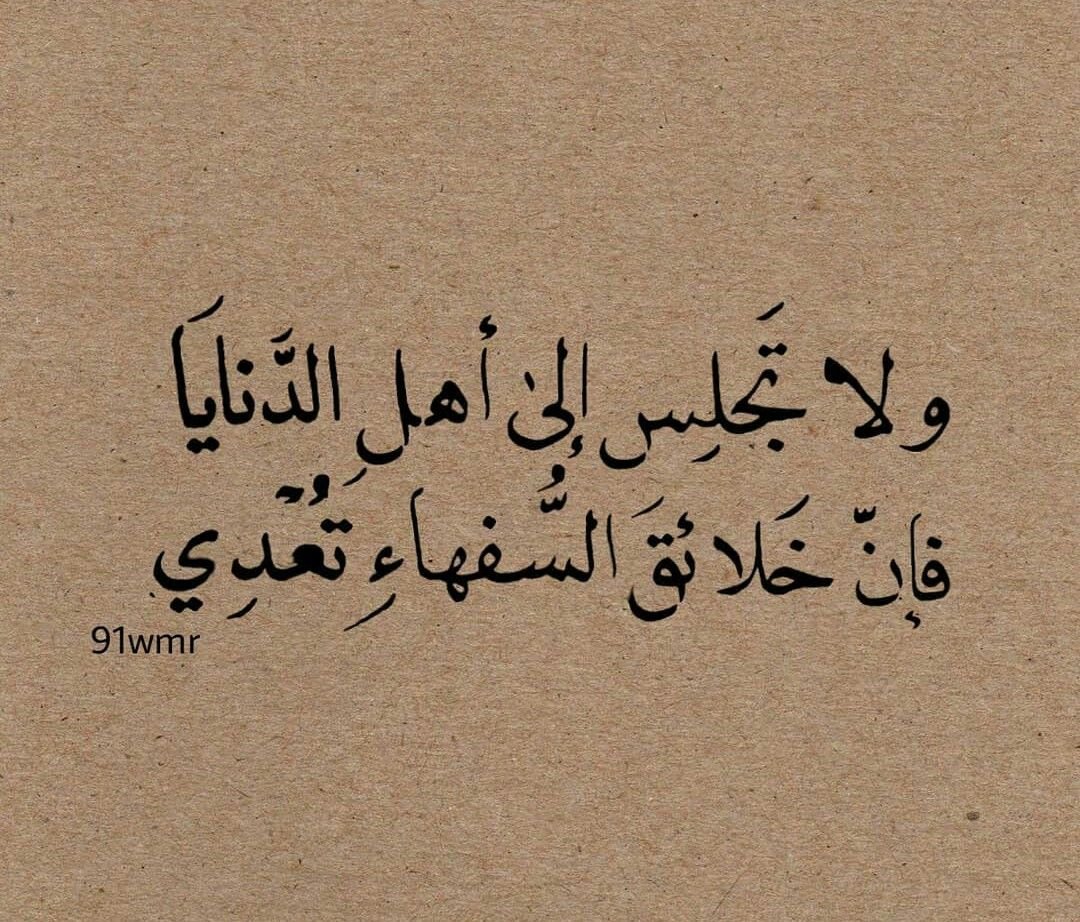 ولا تَجلِس إلىٰ أهلِ الدَّنايَا
فإنّ خَلائقَ السُّفهاءِ تُعْدِي
91wmr